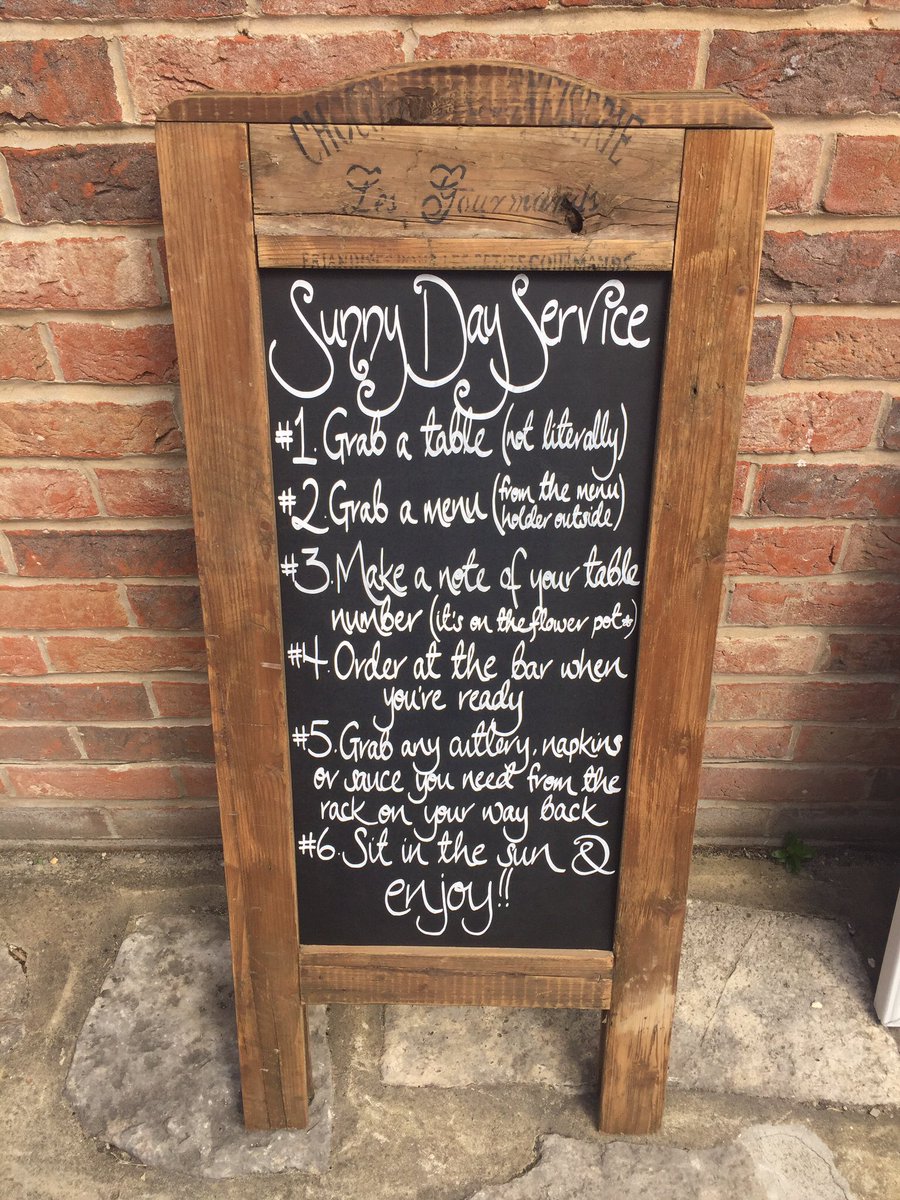 Les Gourmands
Sunny Day Service
#1. Grab a table (not literally)
#2. Grab a menu (from the menu
holder outside)
#3. Make a note of your table
number (it's on the flower pot*)
#4. Order at the bar when
you're ready
#5. Grab any cutlery, napkins
or sauce you need from the
rack on your way back
#6. Sit in the sun &
enjoy!!